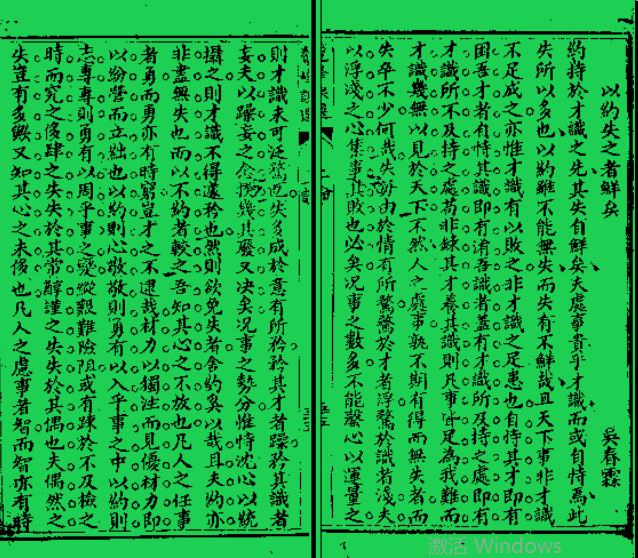 以約失之者鮮矣
吳春霖
約持於才識之先其失自鮮矣夫處事貴乎才識而或自恃為此
失所以多也以約雖不能無失而失有不鮮哉且天下事非才識
不足成之亦惟才識有以敗之非才識之足患也自恃其才即有
囿吾才者自恃其識即有淆吾識者蓋有才識所及持之處即有
才識所不及持之處苟非練其才養其識則凡事皆足為我難而
才識幾無以見於天下不然人之處事孰不期有得而無失者而
失卒不少何哉失每由於情有所騖騖於才者浮騖於識者淺夫
以浮淺之心集事其敗也必矣况事之數多不能罄心以運量之
則才識未可泛騖也失多成於意有所矜矜其才者躁矜其識者
妄夫以躁妄之念揆幾其廢又决矣况事之勢分惟恃沈心以統
攝之則才識不得遂矜也然則欲免失者舍約奚以哉且夫約亦
非盡無失也而以不約者較之吾知其心之不放也凡人之任事
者勇而勇亦有時窮豈才之不逮哉材力以獨注而見優材力即
以紛營而立絀也以約則心敬敬則勇有以入乎事之中以約則
志專專則勇有以周乎事之變縱艱難險阻或有踈於不及檢之
時而究之侈肆之失失於其常醇謹之失失於其偶也夫偶然之
失豈有多歟又知其心之未侈也凡人之慮事者智而智亦有時
激活 Windows